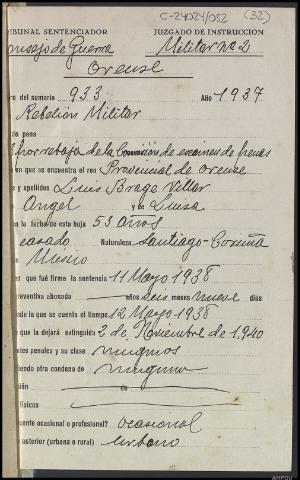 C-24024/052 (32)
RIBUNAL SENTENCIADOR JUZGADO DE INSTRUCCION
Consejo de Guerra Militar nº 2
Orense
ro del sumario 933 Año 1937
Rebelión Militar
de pena
por rebaja de la Comisión de examen de penas
en que se encuentra el reo Provincial de Orense
e y apellidos Luis Brage Villar
Angel y de Luisa
n la fecha de esta hoja 53 años
casado Naturaleza Santiago-Coruña
Músico
en que fué firme la sentencia 11 Mayo 1938
reventiva abonada años seis meses nueve días
sde la que se cuenta el tiempo 12 Mayo 1938
que la dejará extinguida 2 de Noviembre de 1940
ntes penales y su clase ningunos
iendo otra condena de ninguna
sión de
físicos
uente ocasional o profesional? ocasional
o anterior (urbana o rural) urbano